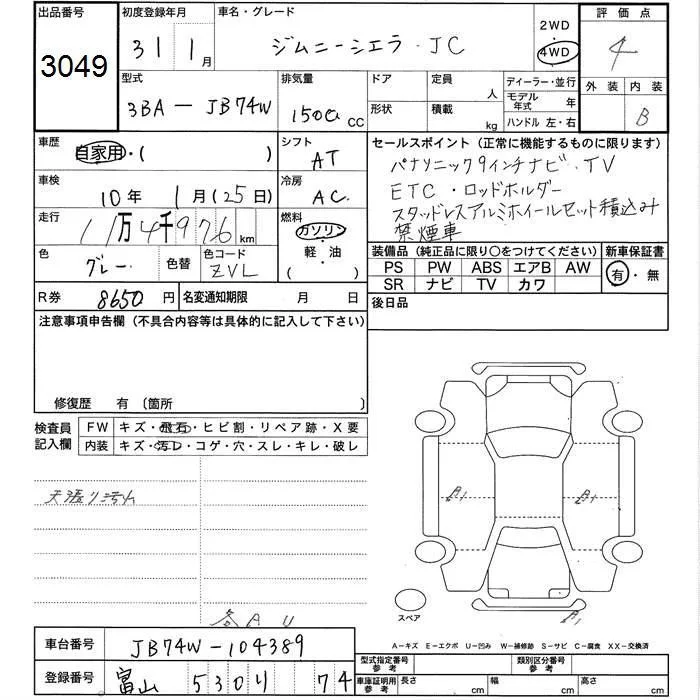 出品番号 初度登録年月 車名・グレード 2WD 評価点
3049 31 1月 ジムニーシエラ・JC 4WD 4
型式 排気量 ドア 定員 人 ディーラー・並行 外装 内装
3BA-JB74W 1500cc 形状 積載 kg モデル年式 年 B
ハンドル 左・右
車歴 自家用・( ) シフト AT セールスポイント(正常に機能するものに限ります)
パナソニック9インチナビ・TV
車検 10年 1月(25日) 冷房 AC ETC・ロッドホルダー
スタッドレスアルミホイールセット積込み
走行 11万4千976km 燃料 ガソリン・軽油( ) 禁煙車
色 グレー 色替 色コード ZVL 装備品(純正品に限り○をつけてください) 新車保証書
PS PW ABS エアB AW 有・無
SR ナビ TV カワ
R券 8650円 名変通知期限 月 日 後日品
注意事項申告欄(不具合内容等は具体的に記入して下さい)
修復歴 有 〔箇所 〕
検査員記入欄 FW キズ・飛石・ヒビ割・リペア跡・X要
内装 キズ・汚レ・コゲ・穴・スレ・キレ・破レ
天張り
A1 A1
各AU
スペア
A-キズ E-エクボ U-凹み W-補修跡 S-サビ C-腐食 XX-交換済
車台番号 JB74W-104389
型式指定番号 参考 類別区分番号 参考
登録番号 富山 530 り 74
車庫証明用 参考 長さ cm 幅 cm 高さ cm